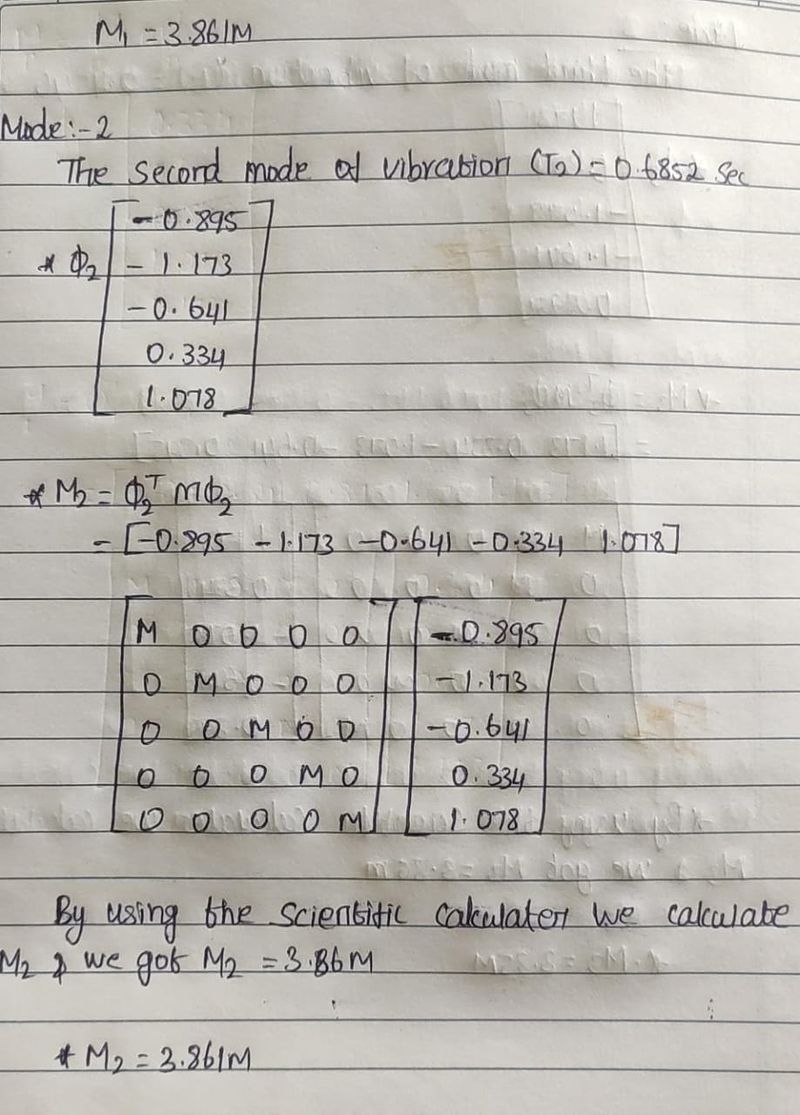 M₁ = 3.861M
Mode:-2
The Second mode of vibration (T₂) = 0.6852 Sec
* Φ₂ [-0.895
-1.173
-0.641
0.334
1.078]
* M₂ = Φ₂ᵀ mΦ₂
= [-0.895 -1.173 -0.641 -0.334 1.078]
[M 0 0 0 0] [-0.895
0 M 0 0 0 -1.173
0 0 M 0 0 -0.641
0 0 0 M 0 0.334
0 0 0 0 M] 1.078]
By using the Scientific calculator we calculate
M₂ & we got M₂ = 3.86M
* M₂ = 3.861M